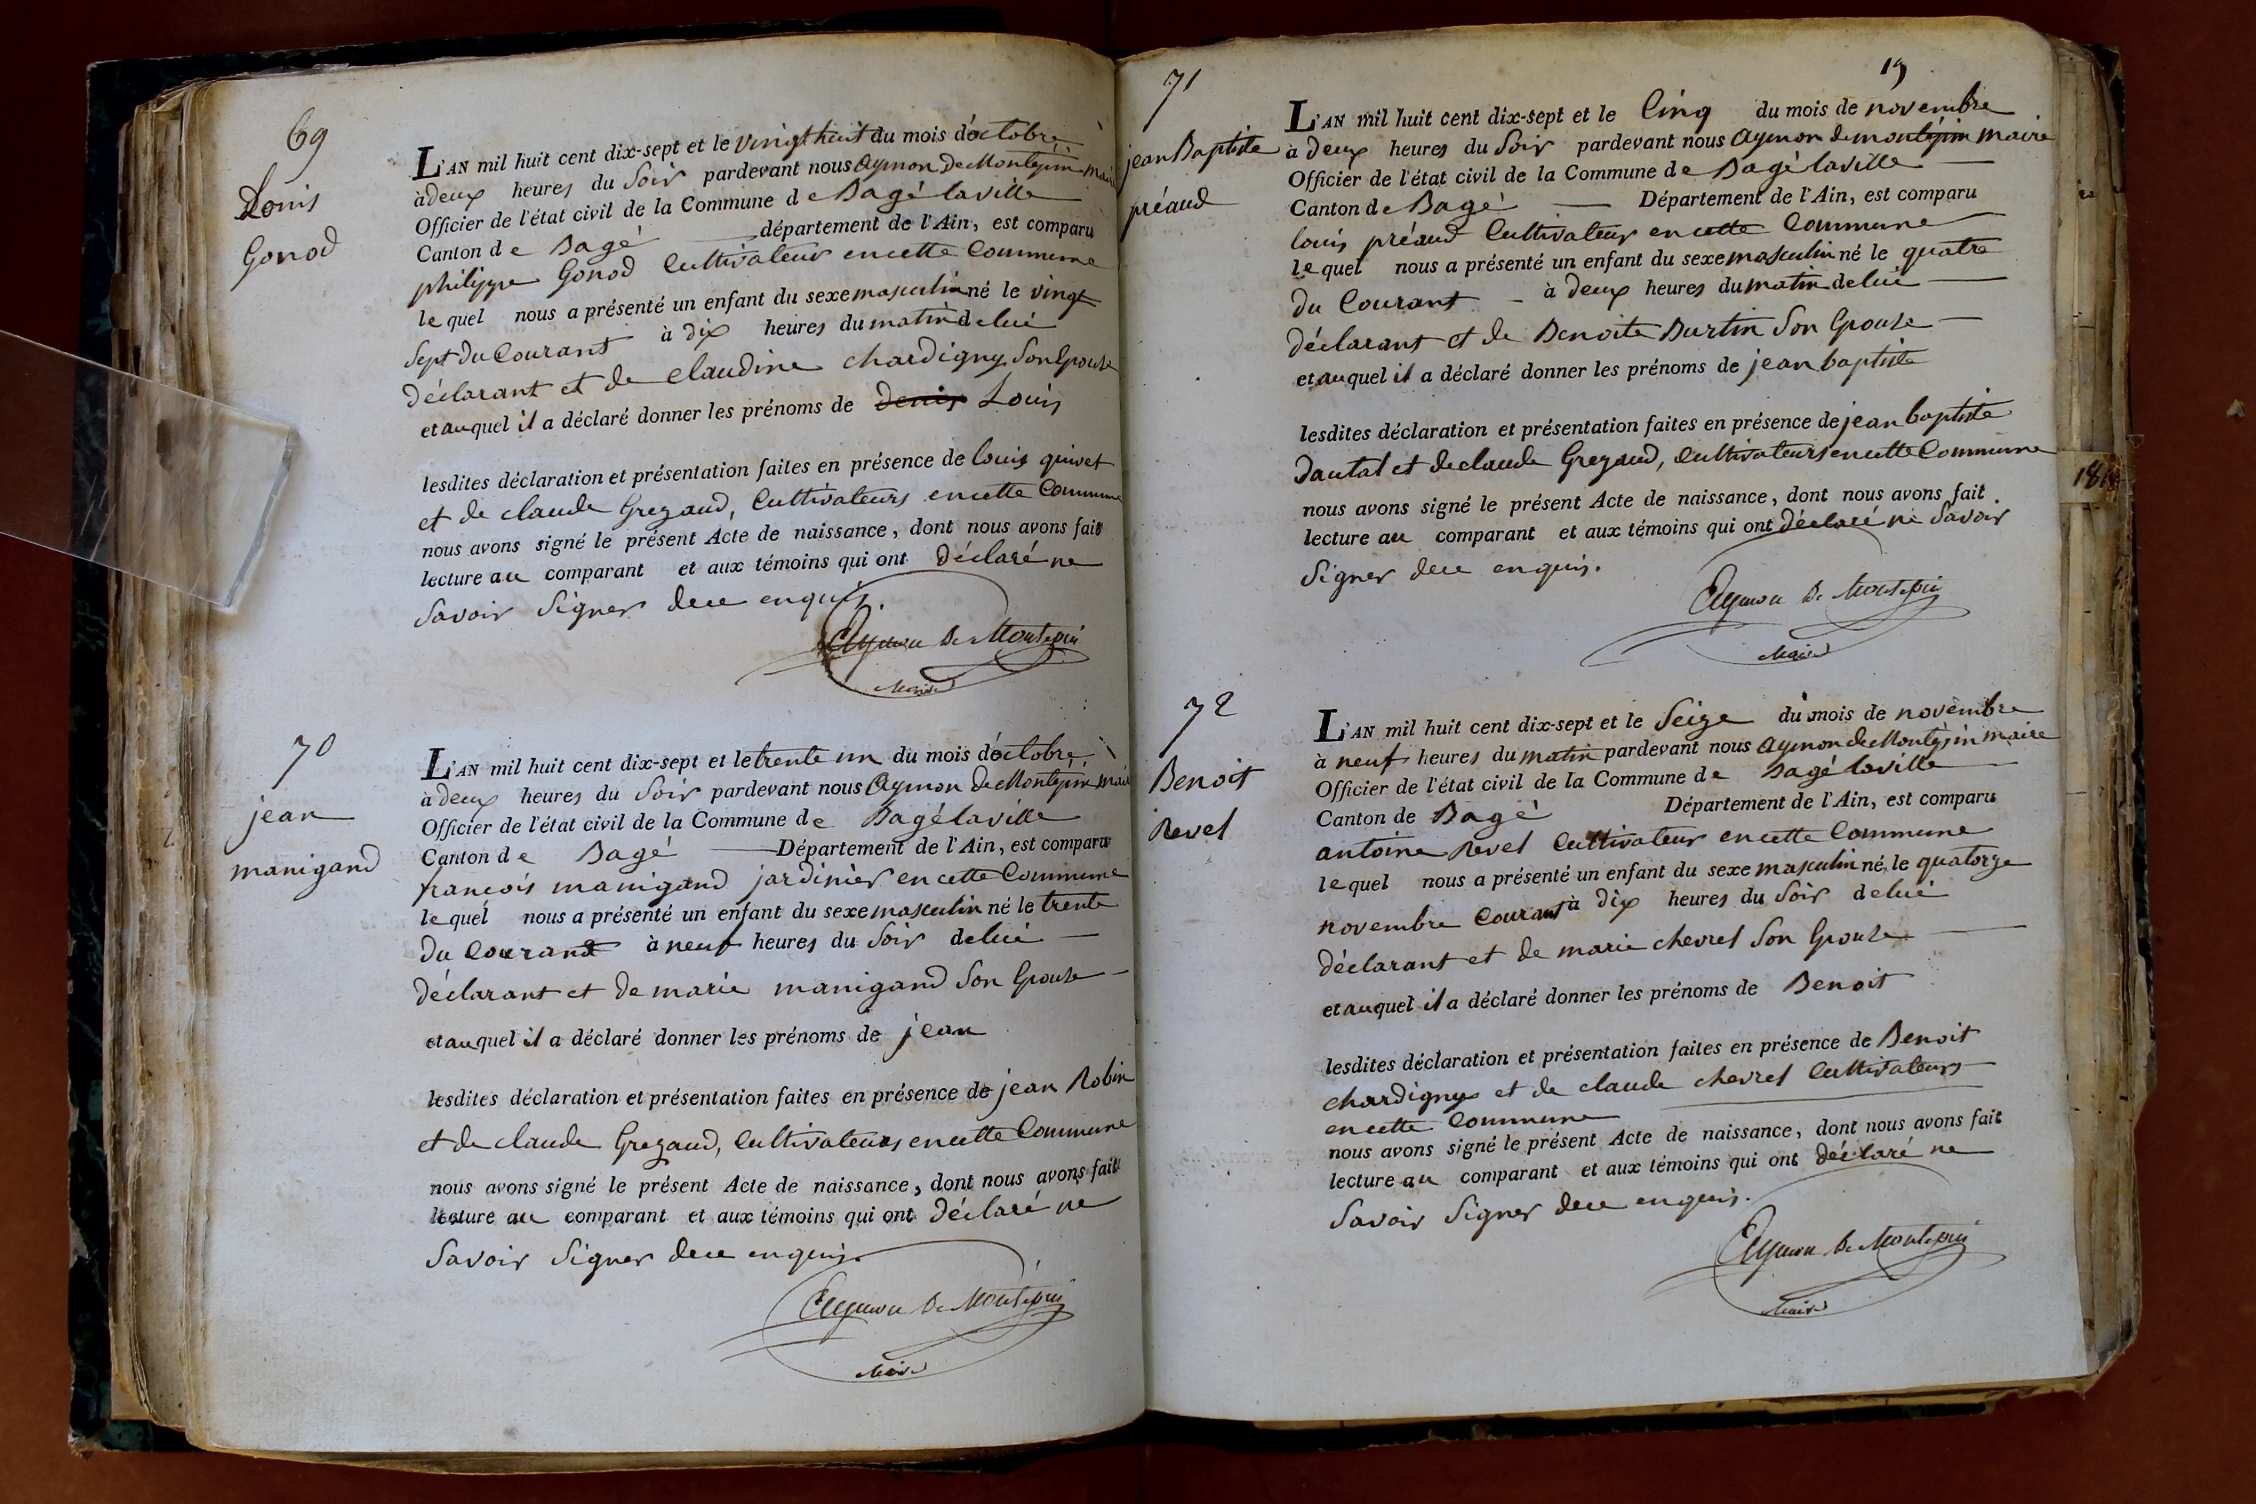 69
Louis
Gonod
L'AN mil huit cent dix-sept et le vingt huit du mois d'octobre
à deux heures du Soir pardevant nous Aymon De Montépin Maire
Officier de l'état civil de la Commune de Bagé la ville
Canton de Bagé département de l'Ain, est comparu
philippe Gonod Cultivateur en cette Commune
lequel nous a présenté un enfant du sexe masculin né le vingt
Sept du Courant à dix heures du matin de lui
déclarant et de claudine chardigny Son Epouse
et auquel il a déclaré donner les prénoms de denis Louis
lesdites déclaration et présentation faites en présence de louis quivet
et de claude Gregaud, Cultivateurs en cette Commune
nous avons signé le présent Acte de naissance, dont nous avons fait
lecture au comparant et aux témoins qui ont déclaré ne
Savoir Signer de ce enquis.
Aymon De Montépin
Maire
70
jean
manigand
L'AN mil huit cent dix-sept et le trente un du mois d'octobre
à deux heures du Soir pardevant nous Aymon De Montépin Maire
Officier de l'état civil de la Commune de Bagé la ville
Canton de Bagé Département de l'Ain, est comparu
françois manigand jardinier en cette Commune
lequel nous a présenté un enfant du sexe masculin né le trente
du Courant à neuf heures du Soir de lui
déclarant et de marie manigand Son Epouse
et auquel il a déclaré donner les prénoms de jean
lesdites déclaration et présentation faites en présence de jean Robin
et de claude Gregaud, Cultivateurs en cette Commune
nous avons signé le présent Acte de naissance, dont nous avons fait
lecture au comparant et aux témoins qui ont déclaré ne
Savoir Signer de ce enquis.
Aymon De Montépin
Maire
19
71
jean Baptiste
préaud
L'AN mil huit cent dix-sept et le Cinq du mois de novembre
à deux heures du Soir pardevant nous Aymon de montépin maire
Officier de l'état civil de la Commune de Bagé la ville
Canton de Bagé Département de l'Ain, est comparu
louis préaud Cultivateur en cette Commune
lequel nous a présenté un enfant du sexe masculin né le quatre
du Courant à deux heures du matin de lui
déclarant et de Benoite Burtin Son Epouse
et auquel il a déclaré donner les prénoms de jean baptiste
lesdites déclaration et présentation faites en présence de jean baptiste
dautal et de claude Gregaud, Cultivateurs en cette Commune
nous avons signé le présent Acte de naissance, dont nous avons fait
lecture au comparant et aux témoins qui ont déclaré ne Savoir
Signer de ce enquis.
Aymon De Montépin
Maire
72
Benoit
Revel
L'AN mil huit cent dix-sept et le Seize du mois de novembre
à neuf heures du matin pardevant nous Aymon de Montépin maire
Officier de l'état civil de la Commune de Bagé laville
Canton de Bagé Département de l'Ain, est comparu
antoine Revel Cultivateur en cette Commune
lequel nous a présenté un enfant du sexe masculin né le quatorze
novembre Courant à dix heures du Soir de lui
déclarant et de marie chevrel Son Epouse
et auquel il a déclaré donner les prénoms de Benoit
lesdites déclaration et présentation faites en présence de Benoit
chardigny et de claude chevrel Cultivateurs
en cette Commune
nous avons signé le présent Acte de naissance, dont nous avons fait
lecture au comparant et aux témoins qui ont déclaré ne
Savoir Signer de ce enquis.
Aymon De Montépin
Maire